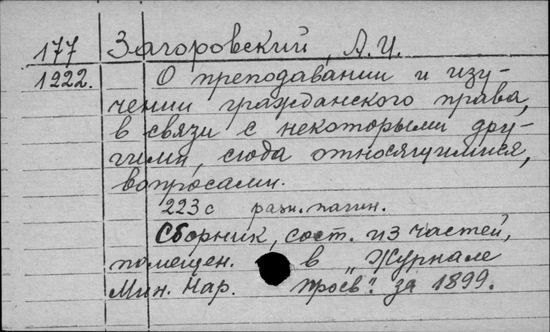 177 Загоровский, А.И.
1222. О преподавании и изу-
чении гражданского права,
в связи с некоторыми дру-
гими, сюда относящимися,
вопросами.
223 с разн. пагин.
Сборник, сост. из частей,
помещен. в „Журнале
Мин. Нар. Просв." за 1899.